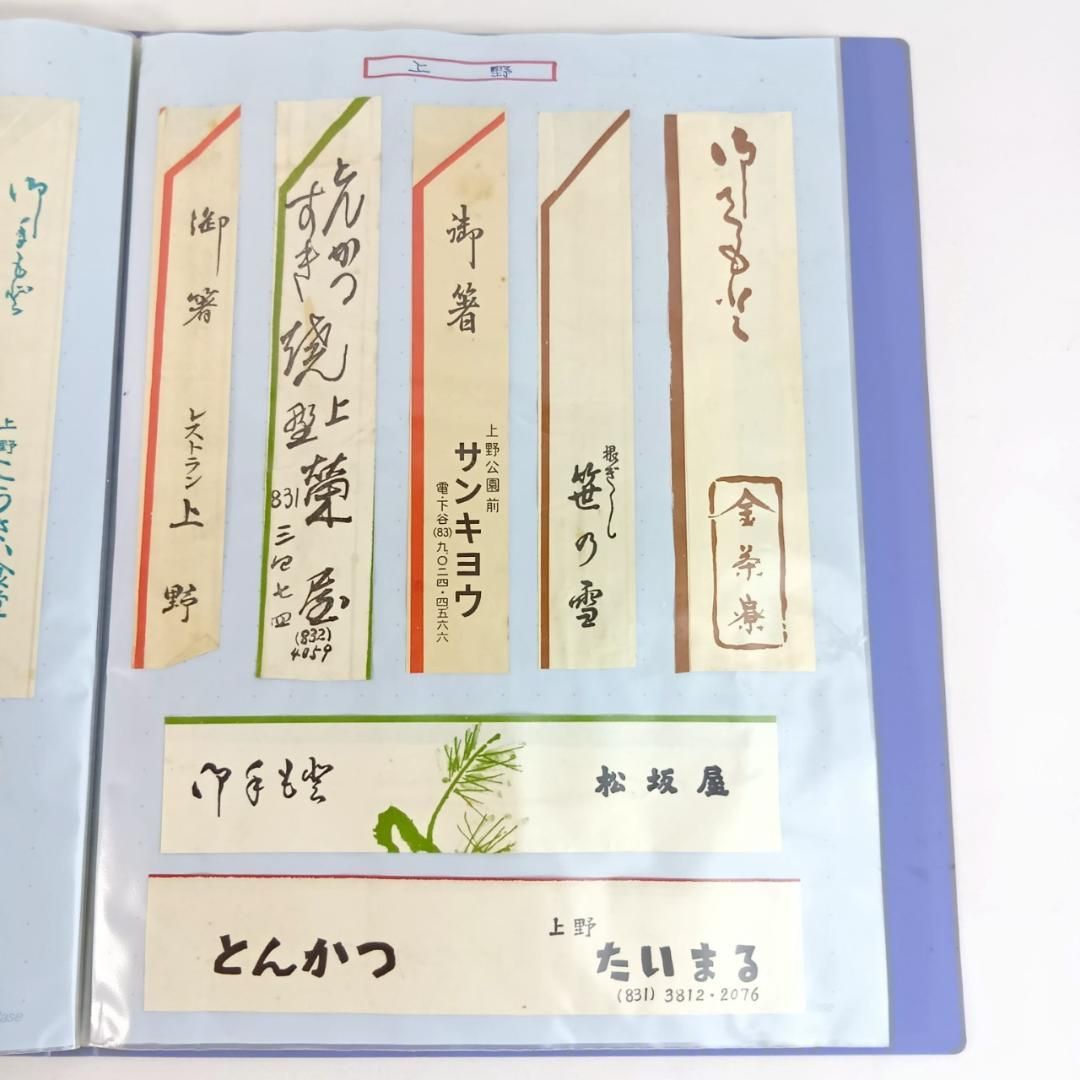 上野
御箸
レストラン 上野
とんかつ
すき焼
上野
榮屋
831
三四七四
(832)
4059
御箸
上野公園前
サンキヨウ
電・下谷(83)九〇二四・四五六六
根ぎし
笹乃雪
御てもと
金茶寮
御手も登
松坂屋
とんかつ
上野
たいまる
(831) 3812・2076
御手も登
上野